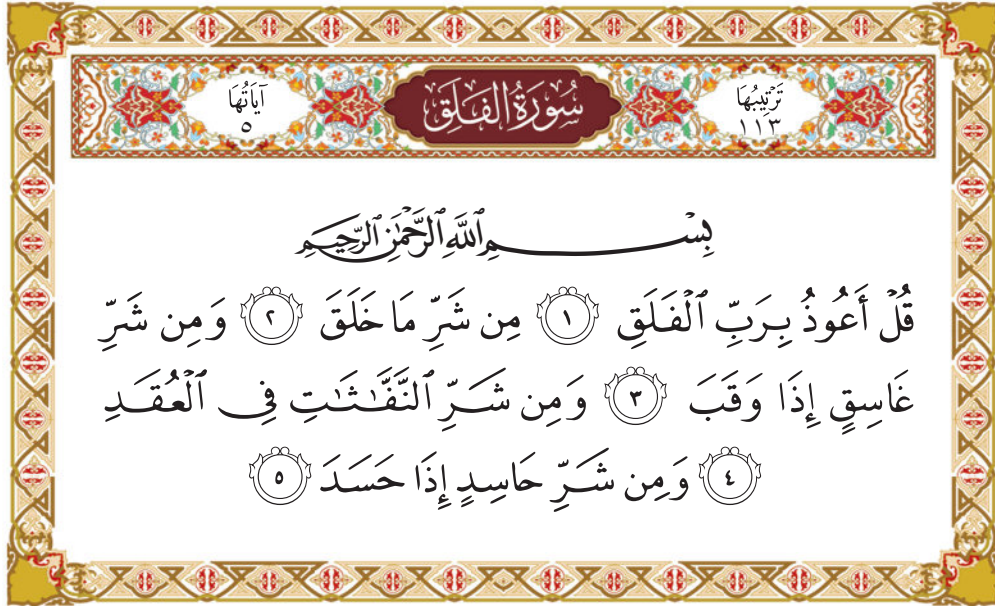 تَرْتِيبُهَا
١١٣
سُورَةُ الفَلَقِ
آيَاتُهَا
٥
بِسْمِ ٱللَّهِ ٱلرَّحْمَٰنِ ٱلرَّحِيمِ
قُلْ أَعُوذُ بِرَبِّ ٱلْفَلَقِ ١ مِن شَرِّ مَا خَلَقَ ٢ وَمِن شَرِّ
غَاسِقٍ إِذَا وَقَبَ ٣ وَمِن شَرِّ ٱلنَّفَّٰثَٰتِ فِى ٱلْعُقَدِ
٤ وَمِن شَرِّ حَاسِدٍ إِذَا حَسَدَ ٥